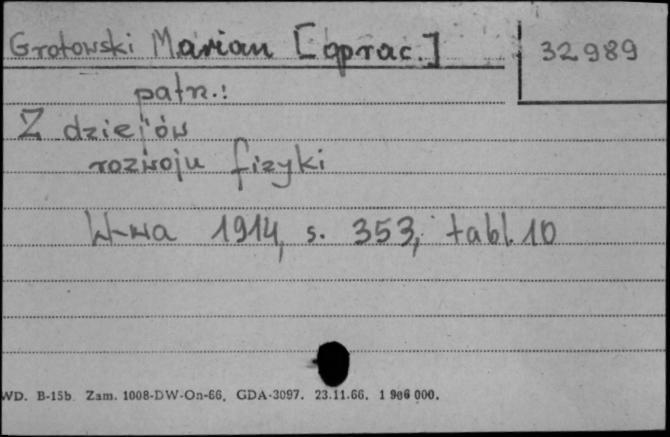 Grotowski Marian [oprac.]
32989
patrz.:
Z dziejów
rozwoju fizyki
W-wa 1914, s. 353, tabl. 10
WD. B-15b Zam. 1008-DW-On-66. GDA-3097. 23.11.66. 1 906 000.